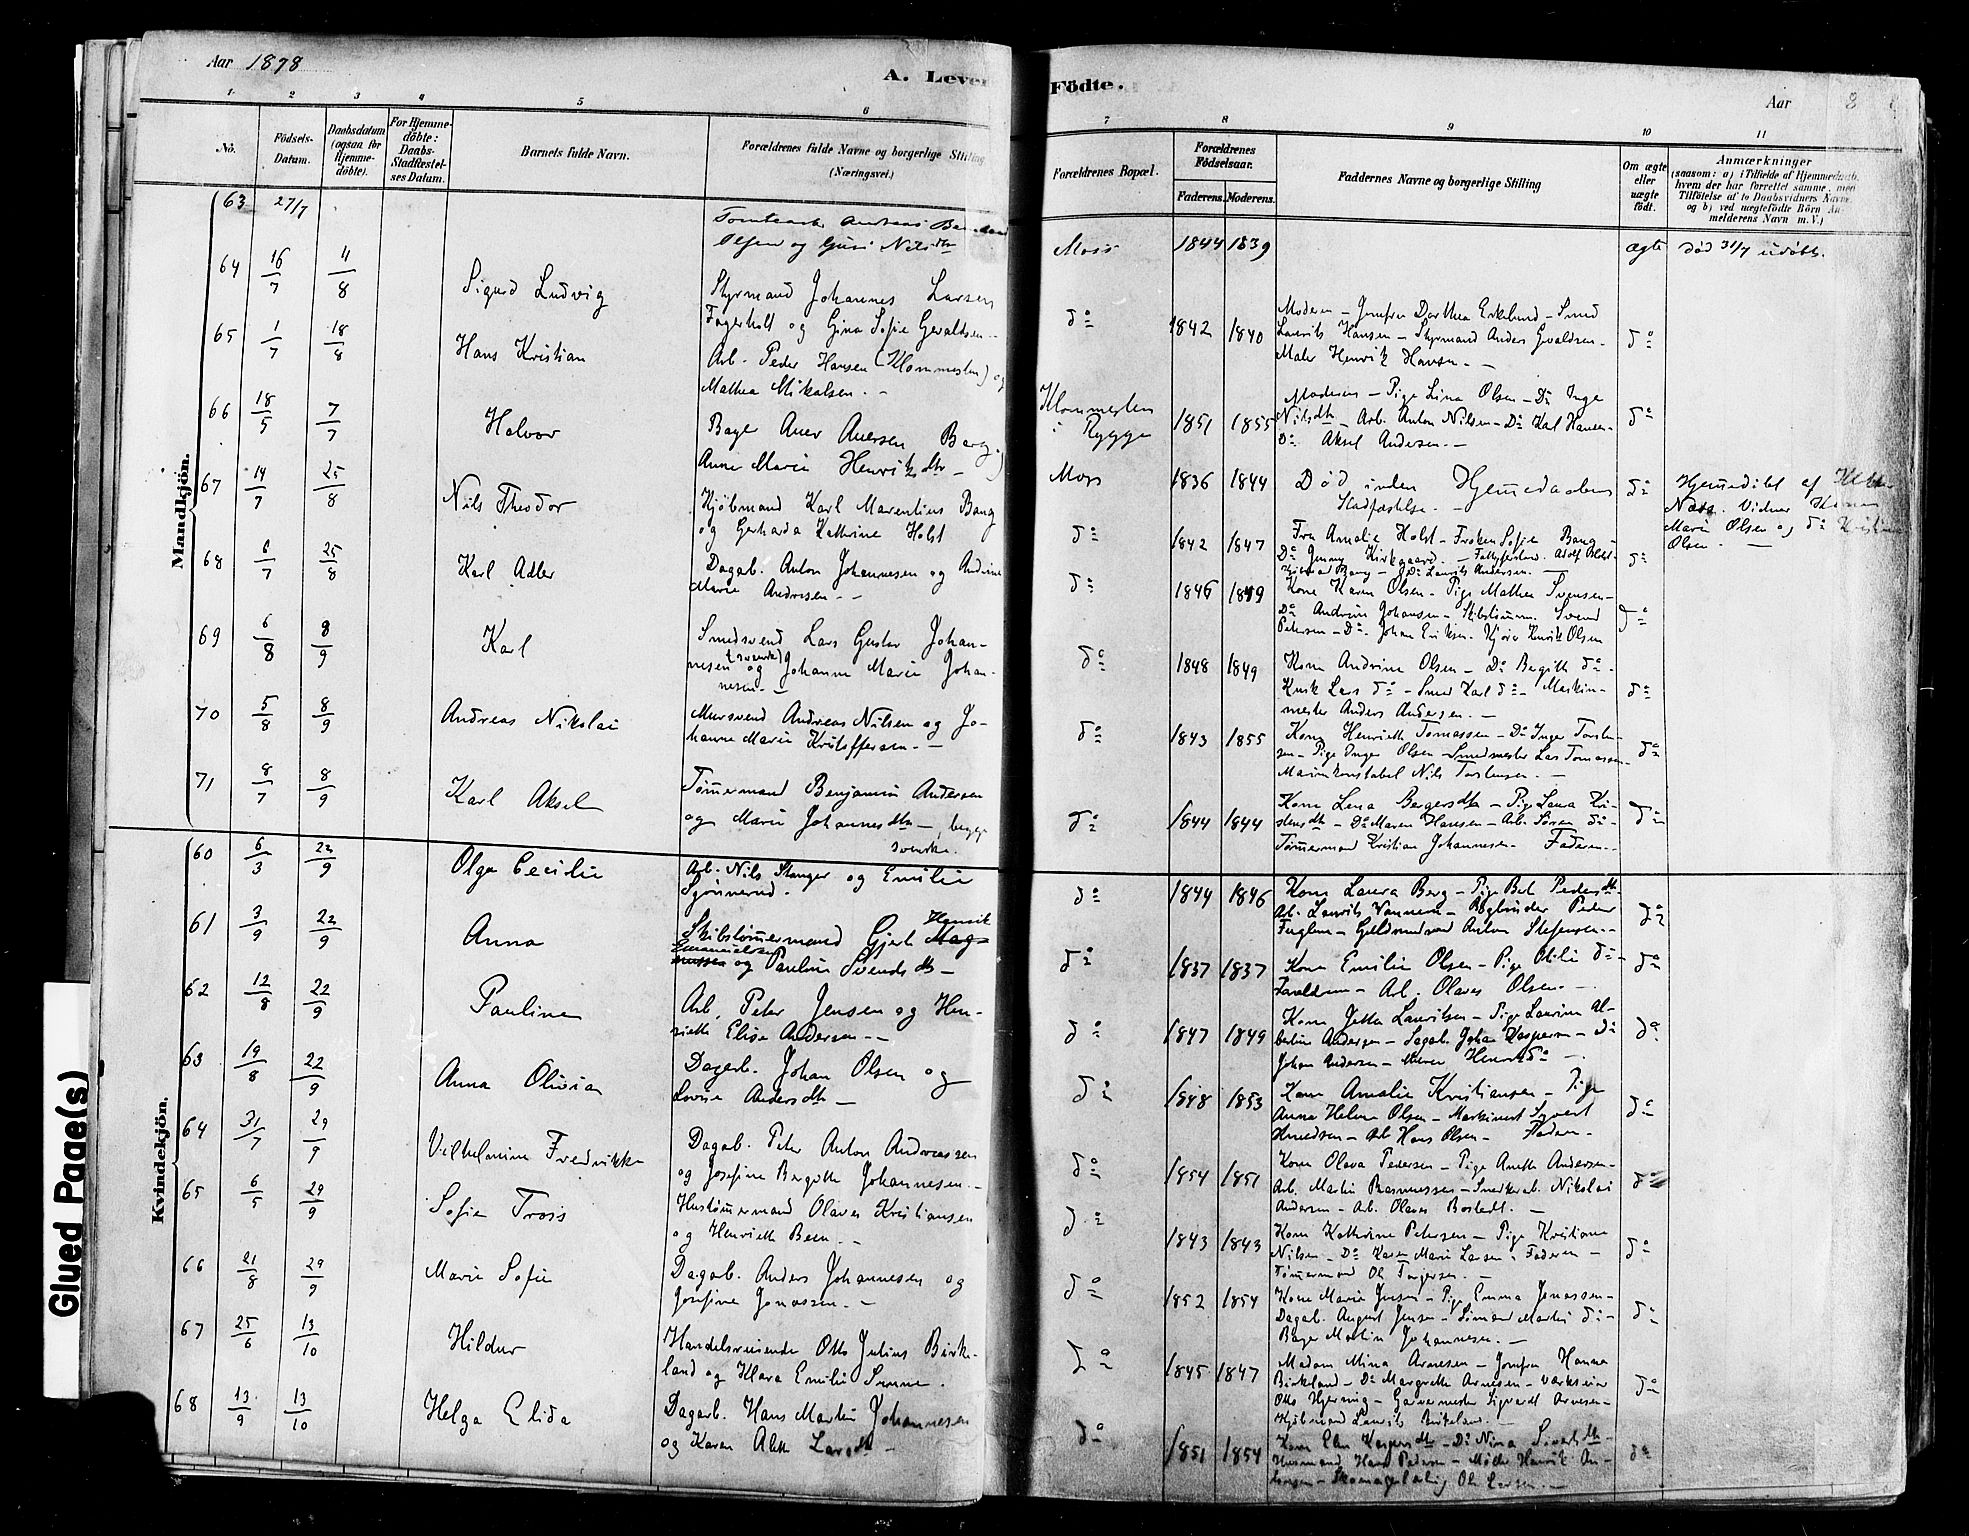 Aar 1878
A. Leve
Födte.
Aar 8
1 2 3 4 5 6 7 8 9 10 11
No.
Födsels-
Datum.
Daabsdatum
(ogsaa for
Hjemme-
döbte).
For Hjemme-
döbte:
Daabs-
Stadfæstel-
ses Datum.
Barnets fulde Navn.
Forældrenes fulde Navne og borgerlige Stilling
(Næringsvei.)
Forældrenes Bopæl.
Forældrenes
Födselsaar.
Faderens. Moderens.
Faddernes Navne og borgerlige Stilling
Om ægte
eller
uægte
födt.
Anmærkninger
(saasom: a) i Tilfælde af Hjemmedaab,
hvem der har forrettet samme, med
Tilföielse af to Daabsvidners Navne,
og b) ved uægtefödte Börn An-
melderens Navn m. V.)
Mandkjön.
63 27/7
Andreas
Olsen og Nilsdtr
Moss 1844 1839 ægte Död 31/7 udöbt.
64 16/7 4/8 Sigurd Ludvig
Styrmand Johannes Larsen
Fagerholt og Gina Sofie Geraldsen -
do 1842 1840
Moderen - Jomfru Dorthea Eklund - Smed
Laurits Hansen - Styrmand Anders Geraldsen -
Maler Henrik Hansen. -
do
65 1/7 18/8 Hans Kristian
Arb. Peder Hansen (Klommesten) og
Mathea Mikalsen. -
Klommesten
i Rygge
1851 1855
Moderen - Pige Lina Olsen - Do Inge
Nilsdtr - Arb. Anton Nilsen - Do Karl Hansen -
Do Aksel Andersen. -
do
66 18/5 7/7 Halvor
Bager Berg
Anne Marie Henriksdtr -
Moss 1836 1844
Död inden Hjemmedaabens
Stadfæstelse. -
do
Hjemmedöbt af
Næss. Vidner
Marie Olsen og do
Olsen. -
67 14/7 25/8 Nils Theodor
Kjöbmand Karl Marentius Bang
og Gerharda Kathrine Holst
do 1842 1847
Fru Amalie Holst - Fröken Sofie Bang -
Do Jenny Kirkgaard - Adolf Holst -
Kjöbmand Bang - Do Laurits Andersen. -
do
68 6/7 25/8 Karl Adler
Dagarb. Anton Johannesen og Andrine
Marie Andresen. -
do 1846 1849
Kone Karen Olsen - Pige Mathea Svensen -
Do Andrine Johansen - Svend
Petersen - Do Johan Eriksen - Henrik Olsen
do
69 6/8 8/9 Karl
Smedsvend Lars Gustav Johan-
nesen (svensk) og Johanne Marie Johan-
nesen. -
do 1848 1849
Kone Andrine Olsen - Do Bergith do -
Kusk Lars do - Smed Karl do - Maskin-
mester Anders Andersen. -
do
70 5/8 8/9 Andreas Nikolai
Mursvend Andreas Nilsen og Jo-
hanne Marie Kristoffersen. -
do 1843 1855
Kone Henriette Tomassen - Do Inger Torsten-
sen - Pige Inger Olsen - Smedmester Lars Tomassen -
Marinekonstabel Nils Torstensen. -
do
71 8/7 8/9 Karl Aksel
Tömmermand Benjamin Andersen
og Marie Johannesdtr -, begge
svenske.
do 1844 1844
Kone Lena Bergersdtr - Pige Lena Kri-
stensdtr - Do Maren Hansen - Arb. Sören do -
Tömmermand Kristian Johannesen - Faderen. -
do
Kvindekjön.
60 6/3 22/9 Olga Cecilie
Arb. Nils Stanger og Emilie
do 1844 1846
Kone Laura Berg - Pige Pedersdtr -
Arb. Laurits - Bogbinder Peder
Fuglum - Guldsmedsvend Anton Steffensen. -
do
61 3/9 22/9 Anna
Henrik
Skibstömmermand Gjert Mag-
Emanuelsen
nussen og Pauline Svendsdtr -
do 1837 1837
Kone Emilie Olsen - Pige Otilie do -
Forældrene - Arb. Olaves Olsen. -
do
62 12/8 22/9 Pauline
Arb. Peter Jensen og Hen-
riette Elise Andersen. -
do 1847 1849
Kone Jette Lauritsen - Pige Laurine Al-
bertine Andersen - Johan Kaspersen - Do
Johan Andersen - Henrik do -
do
63 19/8 22/9 Anna Olivia
Dagarb. Johan Olsen og
Lovise Andersdtr -
do 1848 1853
Kone Amalie Kristiansen - Pige
Anna Helene Olsen - Maskinist Syvert
Knudsen - Arb. Hans Olsen - Faderen -
do
64 31/7 29/9 Vilhelmine Fredrikke
Dagarb. Peter Anton Andreassen
og Josefine Bergitte Johannesen. -
do 1854 1851
Kone Olava Pedersen - Pige Anette Andersen -
Arb. Martin Rasmussen - Snedkerarb. Nikolai
Andersen - Arb. Olaves Bostedt. -
do
65 6/5 29/9 Sofie
Hustömmermand Olaves Kristiansen
og Henriette Been. -
do 1843 1843
Kone Kathrine Petersen - Pige Kristiane
Nilsen - Do Karen Marie Larsen - Faderen -
Tömmermand Ole Torgersen. -
do
66 21/8 29/9 Marie Sofie
Dagarb. Anders Johannesen og
Josefine Jonassen. -
do 1852 1854
Kone Marie Jensen - Pige Emma Jonassen -
Dagarb. August Jensen - Sömand Martin do -
Bager Martin Johannesen. -
do
67 25/6 13/10 Hildur
Handelsreisende Otto Julius Birke-
land og Klara Emilie
do 1845 1847
Madam Mina Arnesen - Jomfru Hanna
Birkeland - Do Margrethe Arnesen - Værkseier
Otto Hjerning - Garvermester Sigvardt Arnesen -
Kjöbmand Laurits Birkeland. -
do
68 13/9 13/10 Helga Elida
Dagarb. Hans Martin Johannesen
og Karen Alette Larsdtr -
do 1851 1854
Kone Elen Kaspersdtr - Do Nina Sivertsdtr -
Husmand Hans Pedersen - Möller Henrik An-
tonsen - Skomagerlærling Ole Larsen. -
do
Glued Page(s)